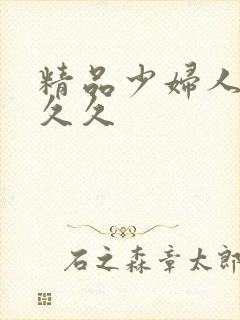 精品少婦人
久久
石之森章太郎